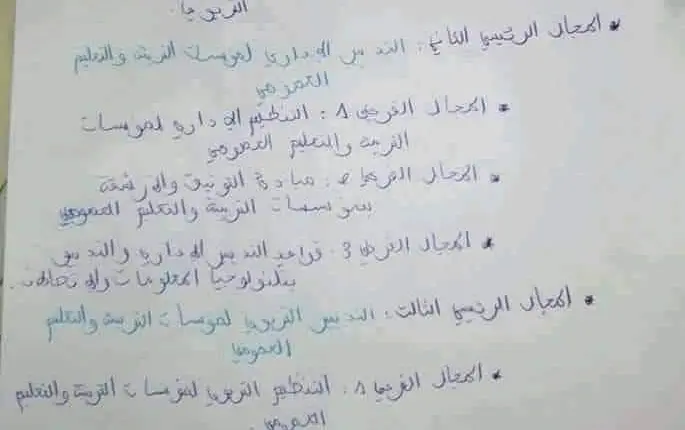 التربوية
* المجال الرئيسي الثاني: التدبير الإداري لمؤسسات التربية والتعليم
العمومي
* المجال الفرعي 1: التنظيم الإداري لمؤسسات
التربية والتعليم العمومي
* المجال الفرعي 2: مبادئ التوثيق والأرشفة
بمؤسسات التربية والتعليم العمومي
* المجال الفرعي 3: قواعد التدبير الإداري والتدبير
بتكنولوجيا المعلومات والاتصالات.
* المجال الرئيسي الثالث: التدبير التربوي لمؤسسات التربية والتعليم
العمومي
* المجال الفرعي 1: التنظيم التربوي لمؤسسات التربية والتعليم
العمومي.